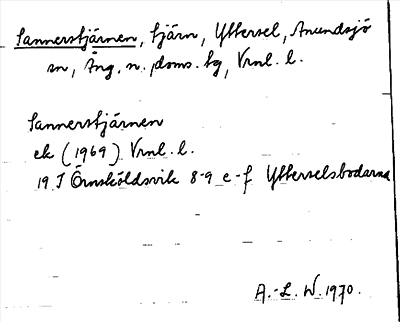 Sannerstjärnen, tjärn, Yttersel, Anundsjö
sn, Ång. n. doms. tg, Vrnl. l.
Sannerstjärnen
ek (1969) Vrnl. l.
19 J Örnsköldsvik 8-9 e-f Ytterselsbodarna
A.-L. W. 1970.